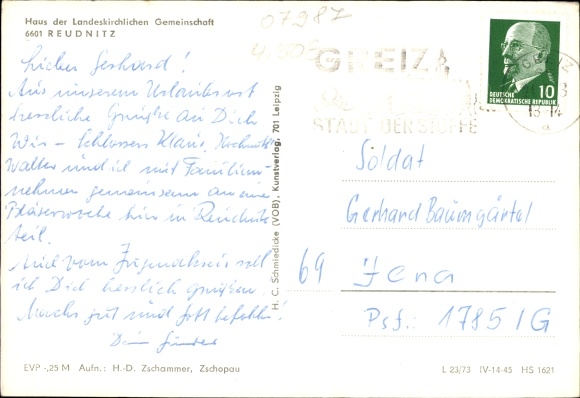 Haus der Landeskirchlichen Gemeinschaft
6601 REUDNITZ
07987
GREIZ
STADT DER STOFFE
GREIZ
13-14
a
DEUTSCHE
DEMOKRATISCHE REPUBLIK
10
Lieber Gerhard!
Aus unserem Urlaubsort
herzliche Grüße an Dich
Wir – Schlossers Klaus,
Walter und ich mit Familien-
nehmen gemeinsam an einer
Bläserwoche hier in Reudnitz
teil.
Auch vom Jugendkreis soll
ich Dich herzlich grüßen.
Machs gut und Gott befohlen!
Dein
H. C. Schmiedicke (VOB), Kunstverlag, 701 Leipzig
Soldat
Gerhard Baumgärtel
69 Jena
Psf.: 1785/G
EVP -,25 M Aufn.: H.-D. Zschammer, Zschopau
L 23/73 IV-14-45 HS 1621